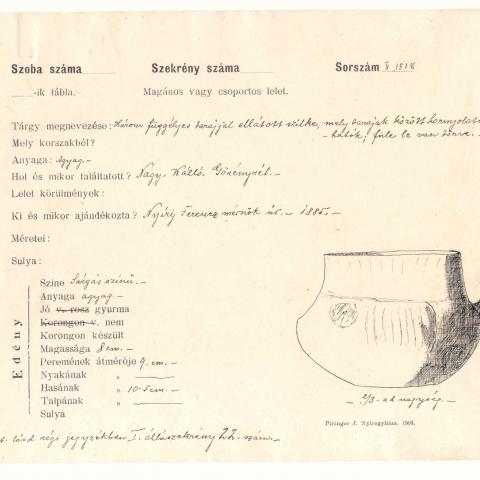 Szoba száma Szekrény száma Sorszám II 1518
-ik tábla. Magános vagy csoportos lelet.
Tárgy megnevezése: Három függélyes tarajjal ellátott szilke, mely tarajak között
hatók; füle le van törve.
Mely korszakból?
Anyaga: agyag.-
Hol és mikor találtatott? Nagy-Kálló.
Lelet körülmények:
Ki és mikor ajándékozta? Nyíry Ferencz mérnök úr. - 1885. -
Méretei:
Sulya:
Edény
Szine Sárgás színű. -
Anyaga agyag -
Jó v. rosz gyurma
Korongon v. nem
Korongon készült
Magassága 8 cm. -
Peremének átmérője 9. cm. -
Nyakának „ -
Hasának „ 10.5 cm. -
Talpának „
Sulya
- 2/3-ad nagyság. -
Piringer J. Nyiregyháza, 1908.
lásd régi jegyzékben I. állószekrény szám. -